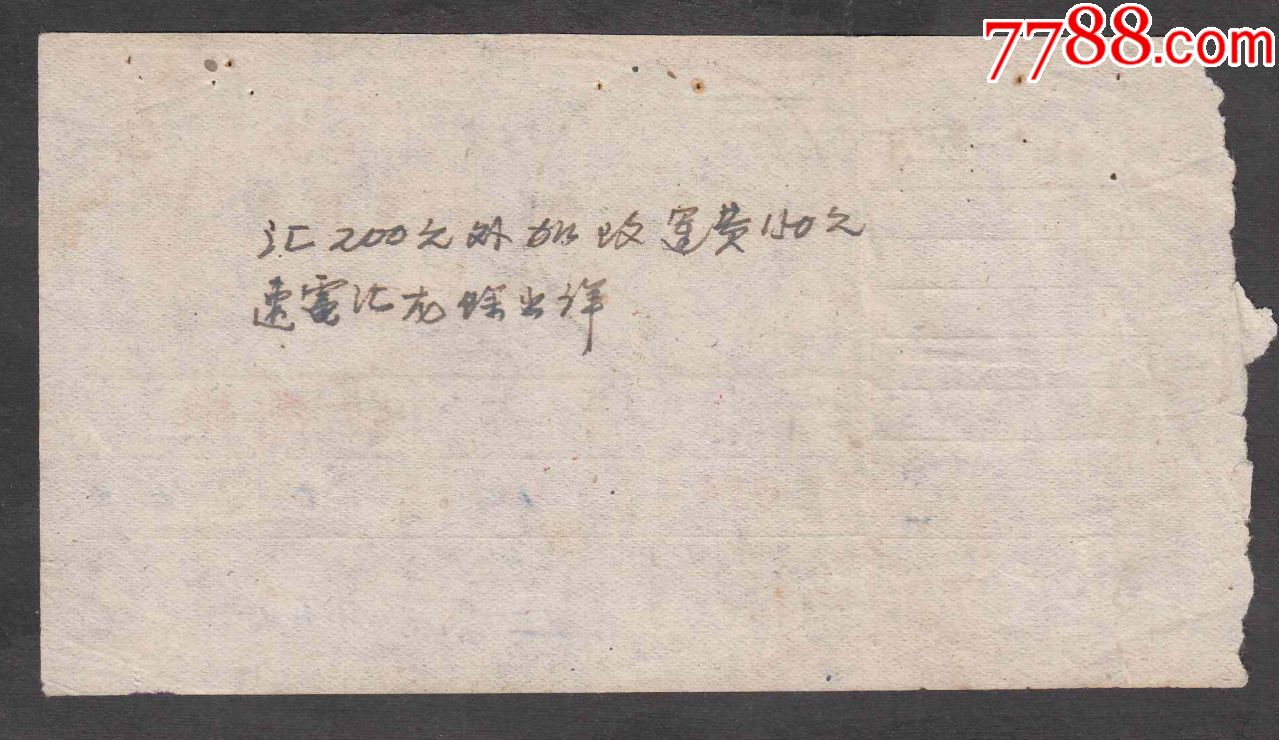 7788.com
汇200元外加收运费150元
速电汇 出详